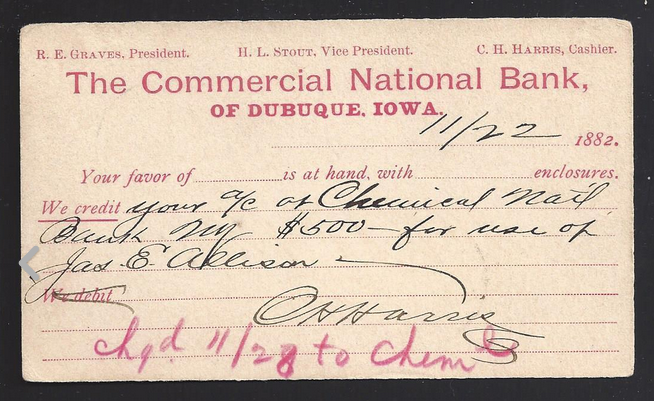 R. E. GRAVES, President. H. L. STOUT, Vice President. C. H. HARRIS, Cashier.
The Commercial National Bank,
OF DUBUQUE, IOWA.
11/22 1882.
Your favor of is at hand, with enclosures.
We credit your a/c at Chemical Natl
Bank NY $500 — for use of
Jas E. Allison
We debit
C H Harris
chgd 11/28 to Chem